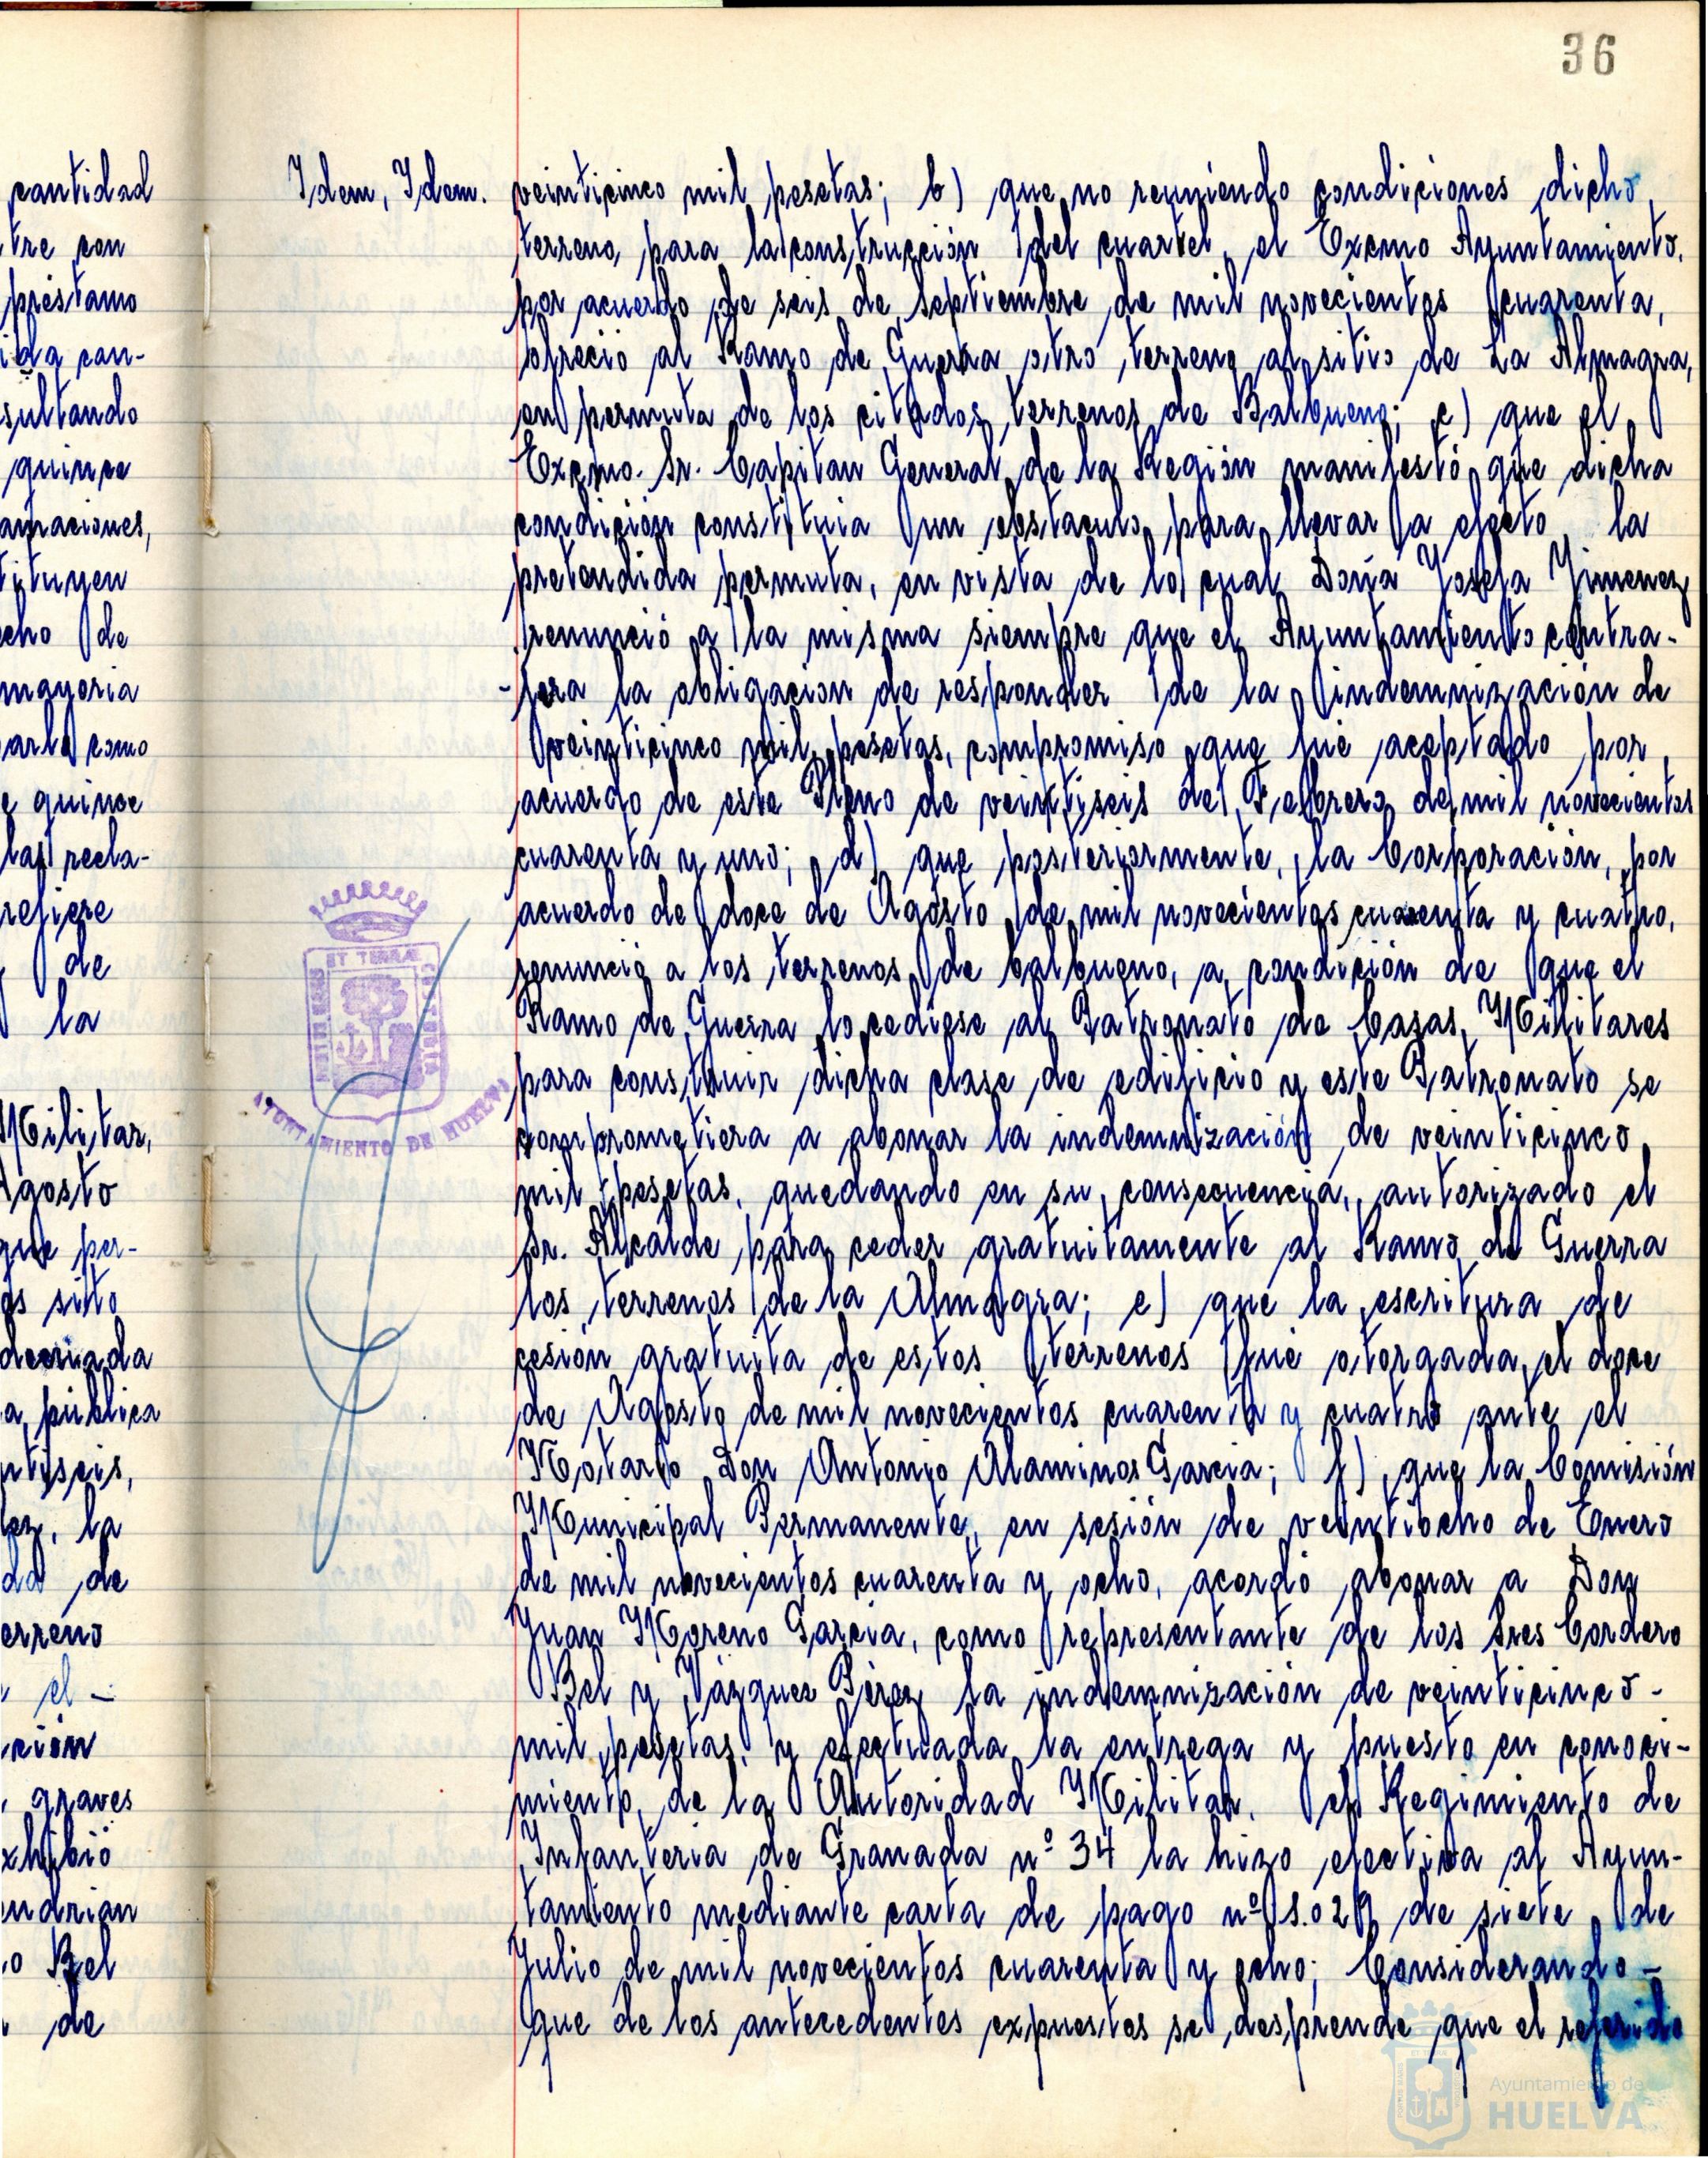 36
cantidad
tre con
préstamo
ida can-
sultando
quince
amaciones,
tituyen
echo de
mayoria
arla como
e quince
las recla-
refiere
de
la
Militar,
Agosto
que per-
os sito
decrinada
a pública
ntiseis,
ez, la
da de
erreno
el -
ción
graves
xhibió
endrian
o Bel
de
Idem, Idem.
veinticinco mil pesetas; b) que no reuniendo condiciones dicho
terreno, para la construcción del cuartel, el Excmo Ayuntamiento,
por acuerdo de seis de Septiembre de mil novecientos cuarenta,
ofreció al Ramo de Guerra otro terreno al sitio de La Almagra,
en permuta de los citados terrenos de Balbueno; c) que el
Excmo. Sr. Capitan General de la Región manifestó que dicha
condición constituia un obstaculo para llevar a efecto la
pretendida permuta, en vista de lo cual Doña Josefa Jimenez
renunció a la misma siempre que el Ayuntamiento contra-
-jera la obligacion de responder de la indemnización de
veinticinco mil pesetas, compromiso que fué aceptado por
acuerdo de este Pleno de veintiseis de Febrero de mil novecientos
cuarenta y uno; d) que posteriormente, la Corporación, por
acuerdo de doce de Agosto de mil novecientos cuarenta y cuatro,
renunció a los terrenos de balbueno, a condición de que el
Ramo de Guerra lo cediese al Patronato de Casas Militares
para construir dicha clase de edificio y este Patronato se
comprometiera a abonar la indemnización de veinticinco
mil pesetas, quedando en su consecuencia, autorizado el
Sr. Alcalde para ceder gratuitamente al Ramo de Guerra
los terrenos de la Almagra; e) que la escritura de
cesión gratuita de estos terrenos fué otorgada el doce
de Agosto de mil novecientos cuarenta y cuatro ante el
Notario Don Antonio Alaminos Garcia; f) que la Comisión
Municipal Permanente, en sesión de veintiocho de Enero
de mil novecientos cuarenta y ocho, acordó abonar a Don
Juan Moreno Garcia, como representante de los Sres Cordero
Bel y Vázquez Pérez la indemnización de veinticinco-
mil pesetas, y efectuada la entrega y puesto en conoci-
miento, de la Autoridad Militar, el Regimiento de
Infanteria de Granada nº 34 la hizo efectiva al Ayun-
tamiento mediante carta de pago nº 1.029 de siete de
Julio de mil novecientos cuarenta y ocho; Considerando-
que de los antecedentes expuestos se desprende que el referido
ET TERRÆ
AYUNTAMIENTO DE HUELVA
Ayuntamiento de
HUELVA